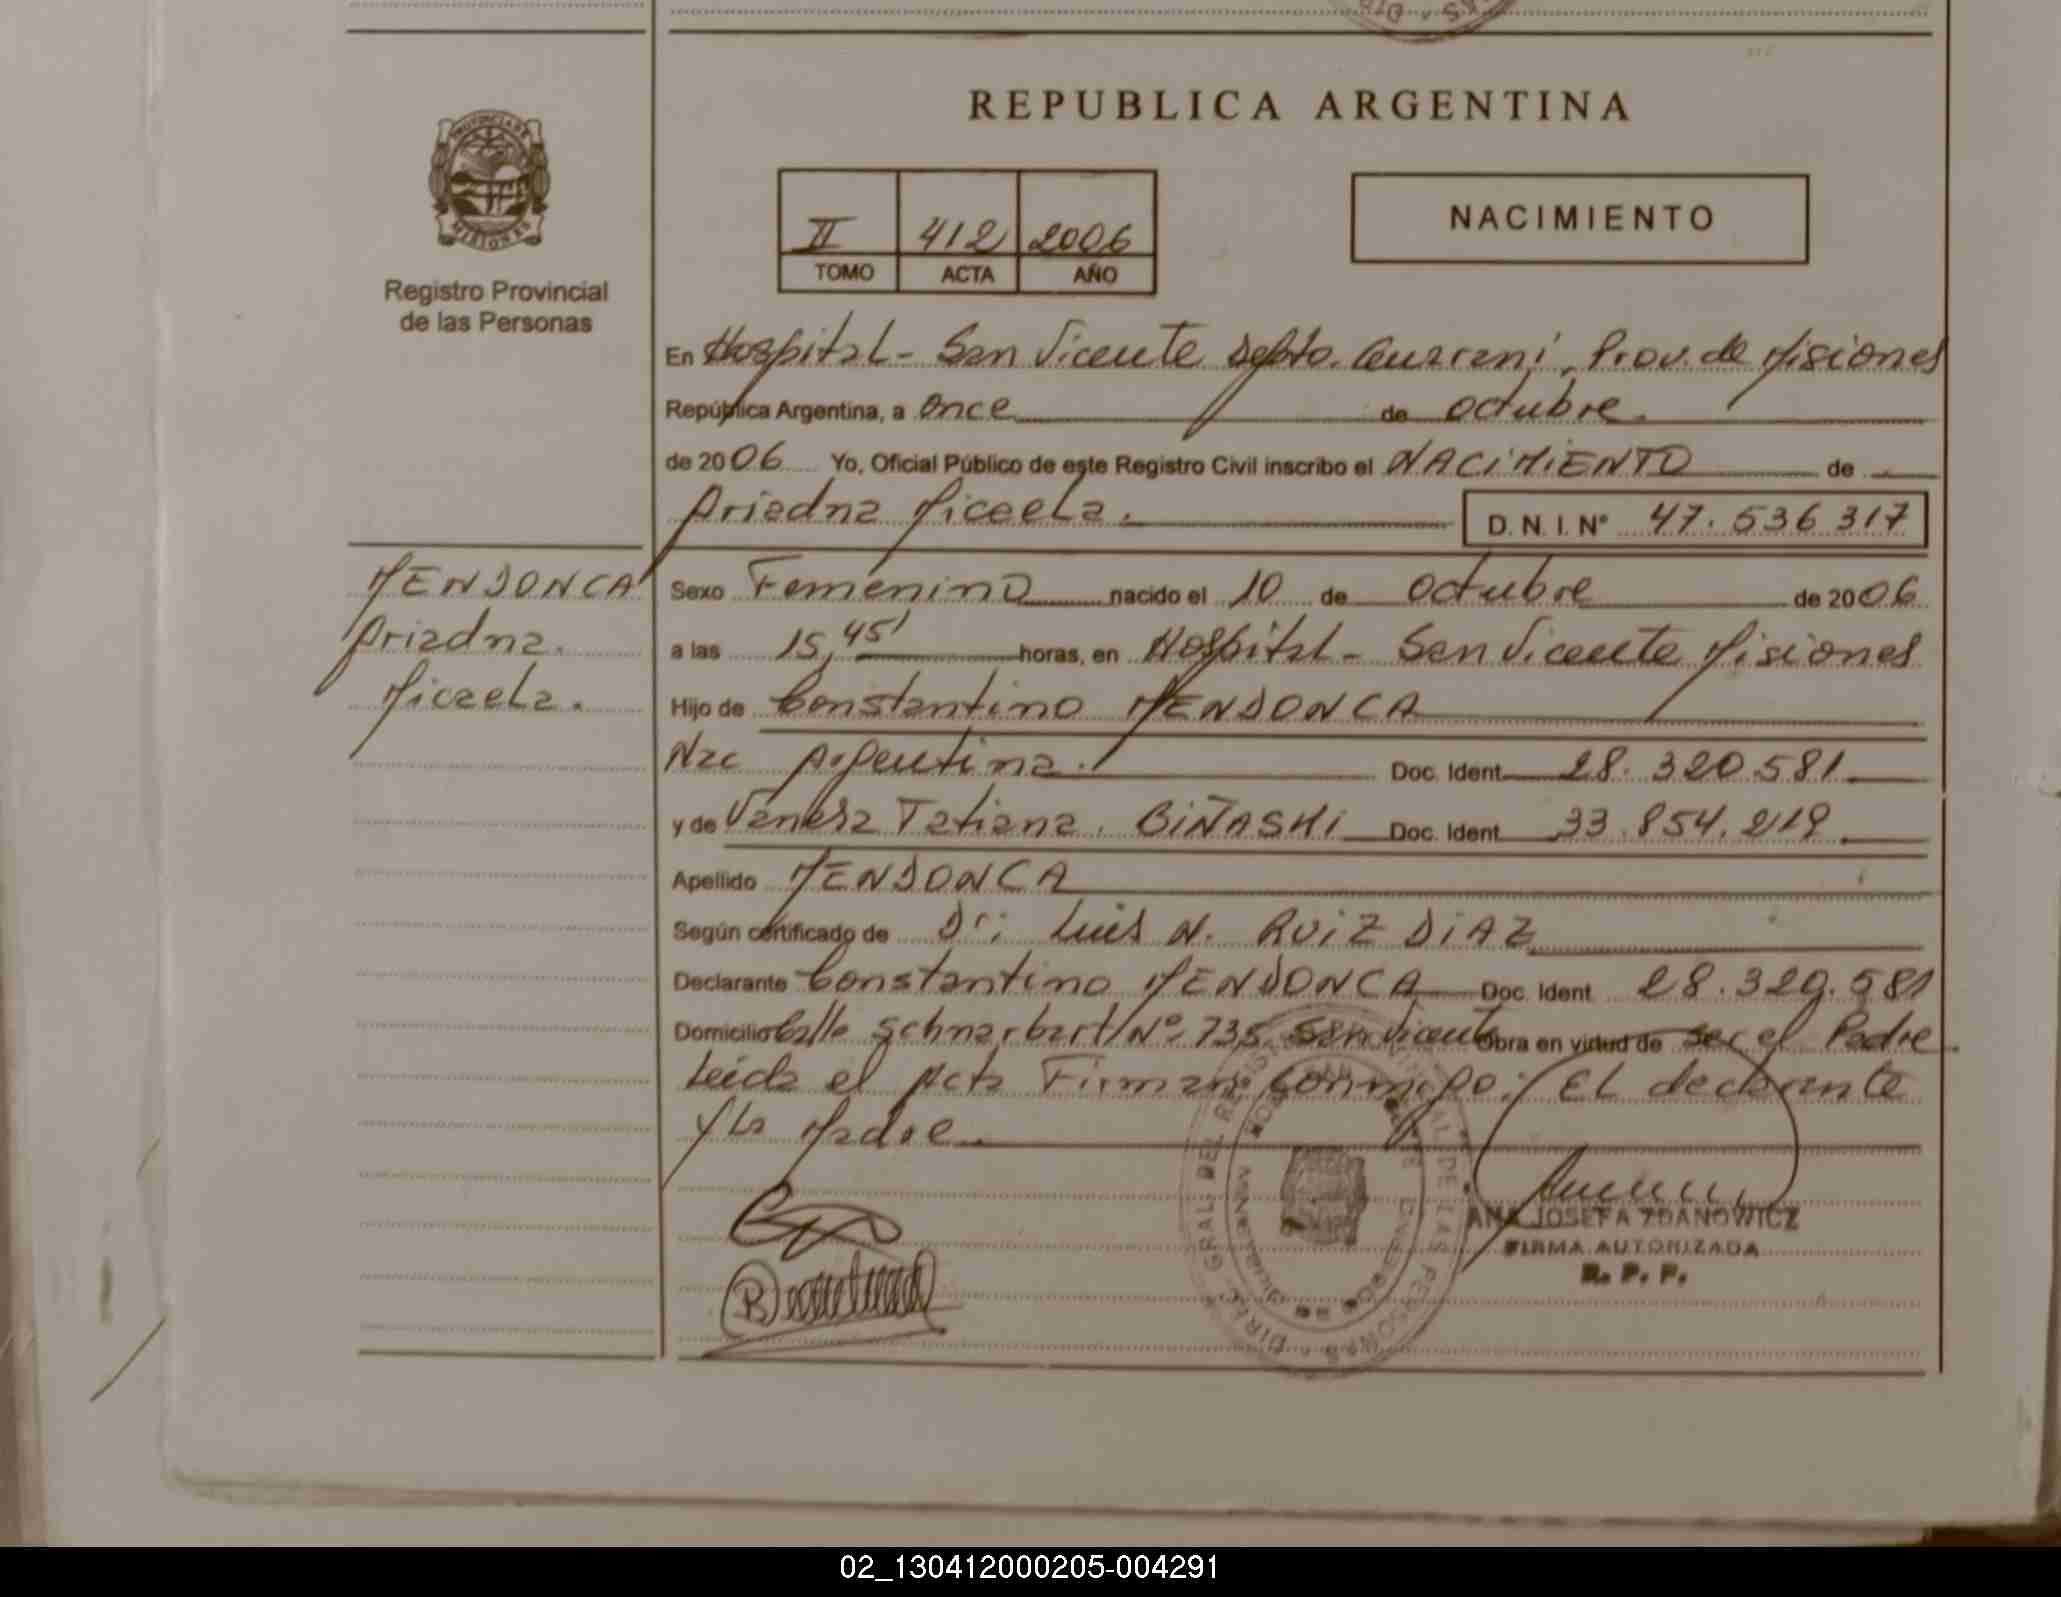 REPUBLICA ARGENTINA
PROVINCIA DE
MISIONES
Registro Provincial
de las Personas
II 412 2006
TOMO ACTA AÑO
NACIMIENTO
En Hospital - San Vicente Depto. Guarani, Prov. de Misiones
República Argentina, a once de octubre.
de 2006 Yo, Oficial Público de este Registro Civil inscribo el NACIMIENTO de
Ariadna Micaela. D. N. I. N° 47.536.317
MENDONCA
Ariadna.
Micaela.
Sexo Femenino nacido el 10 de octubre de 2006
a las 15,45' horas, en Hospital - San Vicente Misiones
Hijo de Constantino MENDONCA
Nac Argentina. Doc. Ident. 28.320.581
y de Vanesa Tatiana. BIÑASKI Doc. Ident. 33.854.219
Apellido MENDONCA
Según certificado de Dr: Luis N. RUIZ DIAZ
Declarante Constantino MENDONCA Doc. Ident. 28.320.581
Domicilio Calle Schnarbart N° 735 San Vicente Obra en virtud de ser el Padre
Leida el Acta Firman conmigo: El declarante
y la Madre
ANA JOSEFA ZDANOWICZ
FIRMA AUTORIZADA
R. P. P.
DIREC. GRAL. DEL REGISTRO DE LAS PERSONAS
02_130412000205-004291